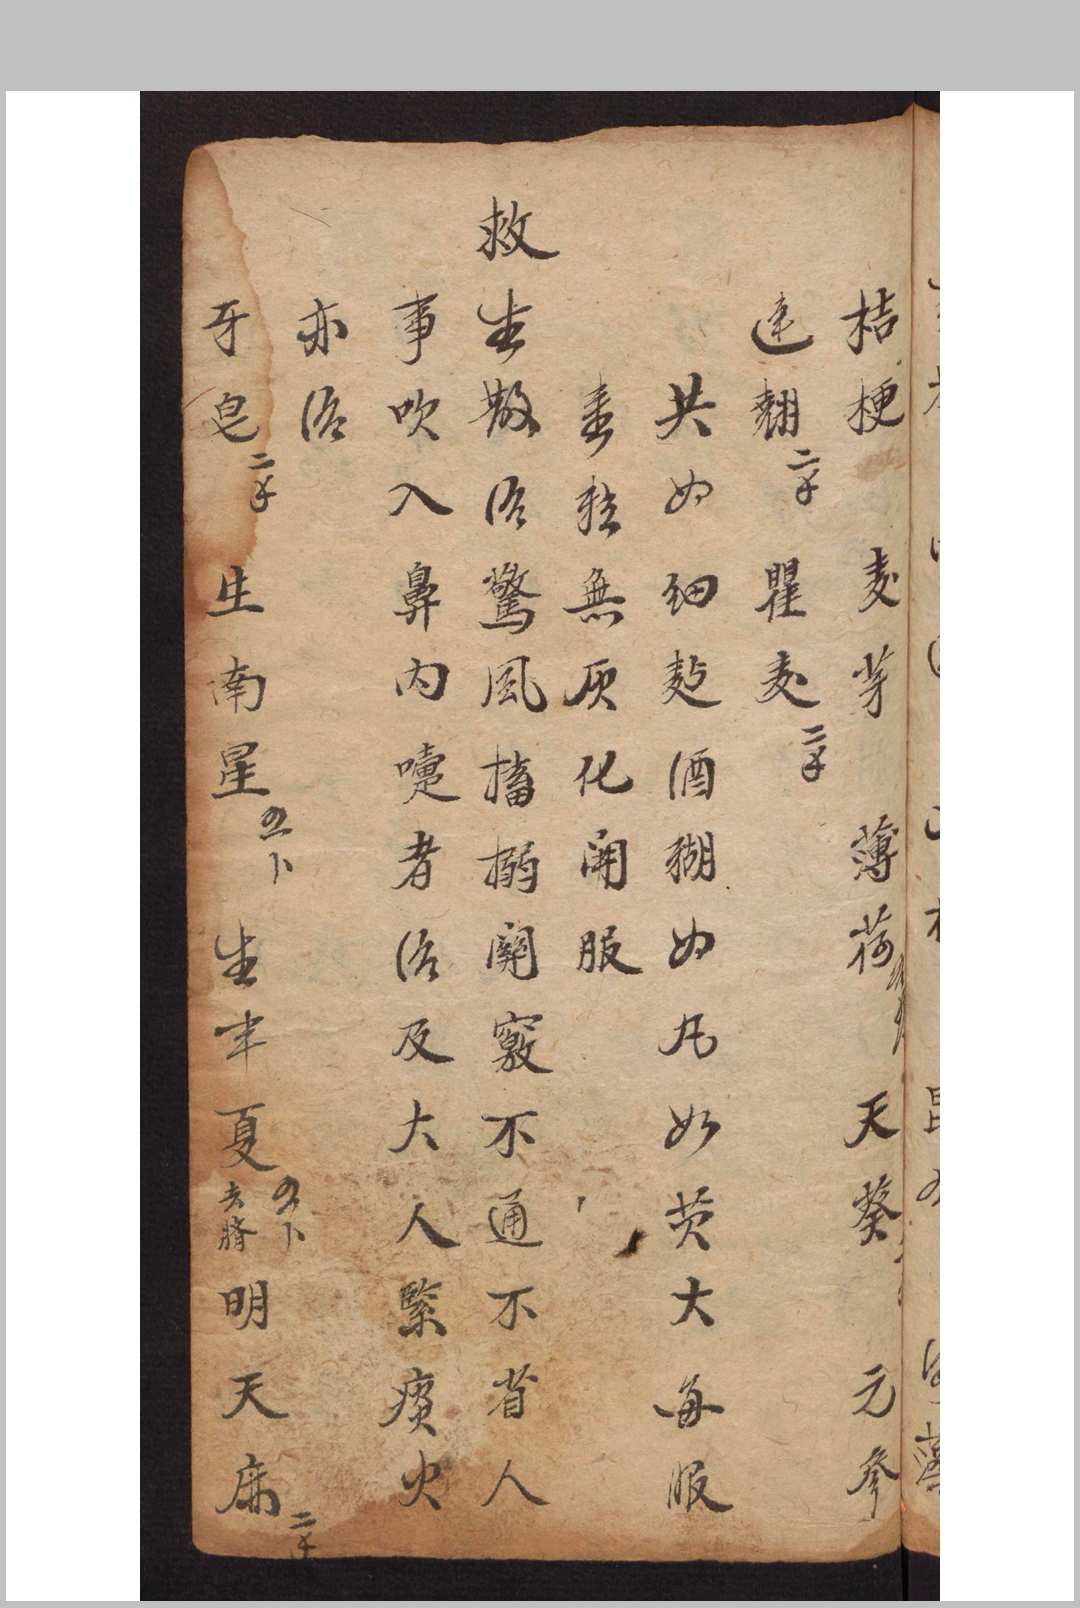 桔梗 麦芽 薄荷 天葵 元參
连翘二 瞿麦二
共为细麪酒糊为丸如芡大每服
壹粒無灰化開服
救生散治驚風搐搦関竅不通不省人
事吹入鼻內嚏者治及大人緊痰火
亦治
牙皂二 生南星 生半夏去臍 明天麻二